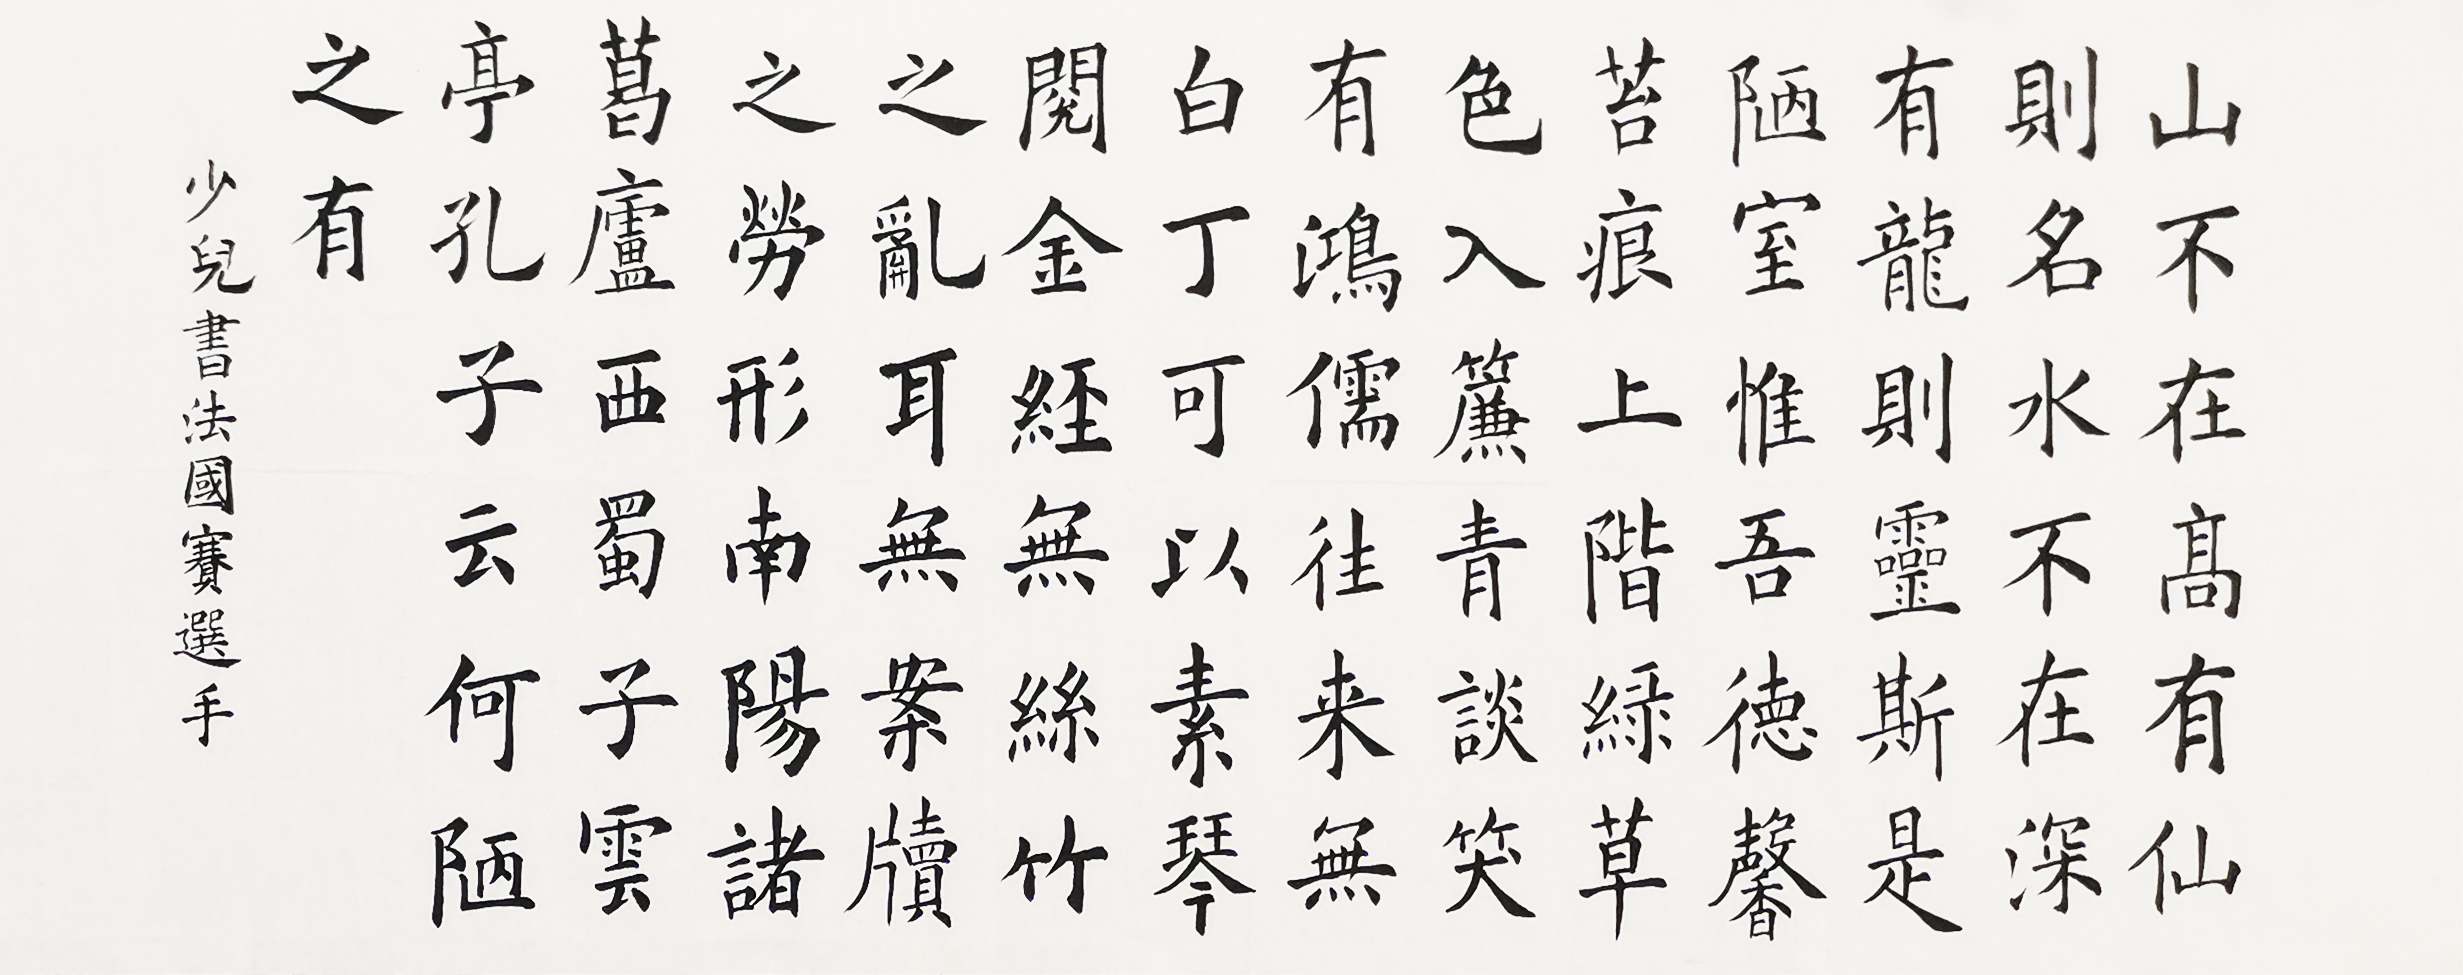 山不在高有仙
則名水不在深
有龍則靈斯是
陋室惟吾德馨
苔痕上階綠草
色入簾青談笑
有鴻儒往来無
白丁可以素琴
閱金經無絲竹
之亂耳無案牘
之勞形南陽諸
葛廬西蜀子雲
亭孔子云何陋
之有
少兒書法國賽選手